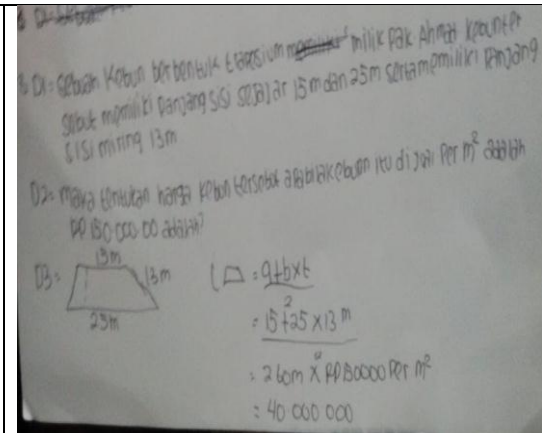 D1 = Sebuah Kebun berbentuk trapesium milik Pak Ahmad kebun ter
sebut memiliki panjang sisi sejajar 15m dan 25m serta memiliki panjang
sisi miring 13m
D2 = maka tentukan harga kebun tersebut apabila kebun itu di jual Per m² adalah
RP 150.000.00 adalah?
D3 =
15m
13m
25m
L = a+b x t
2
= 15+25 x 13 m
= 260m x RP 150000 Per m²
= 40.000 000